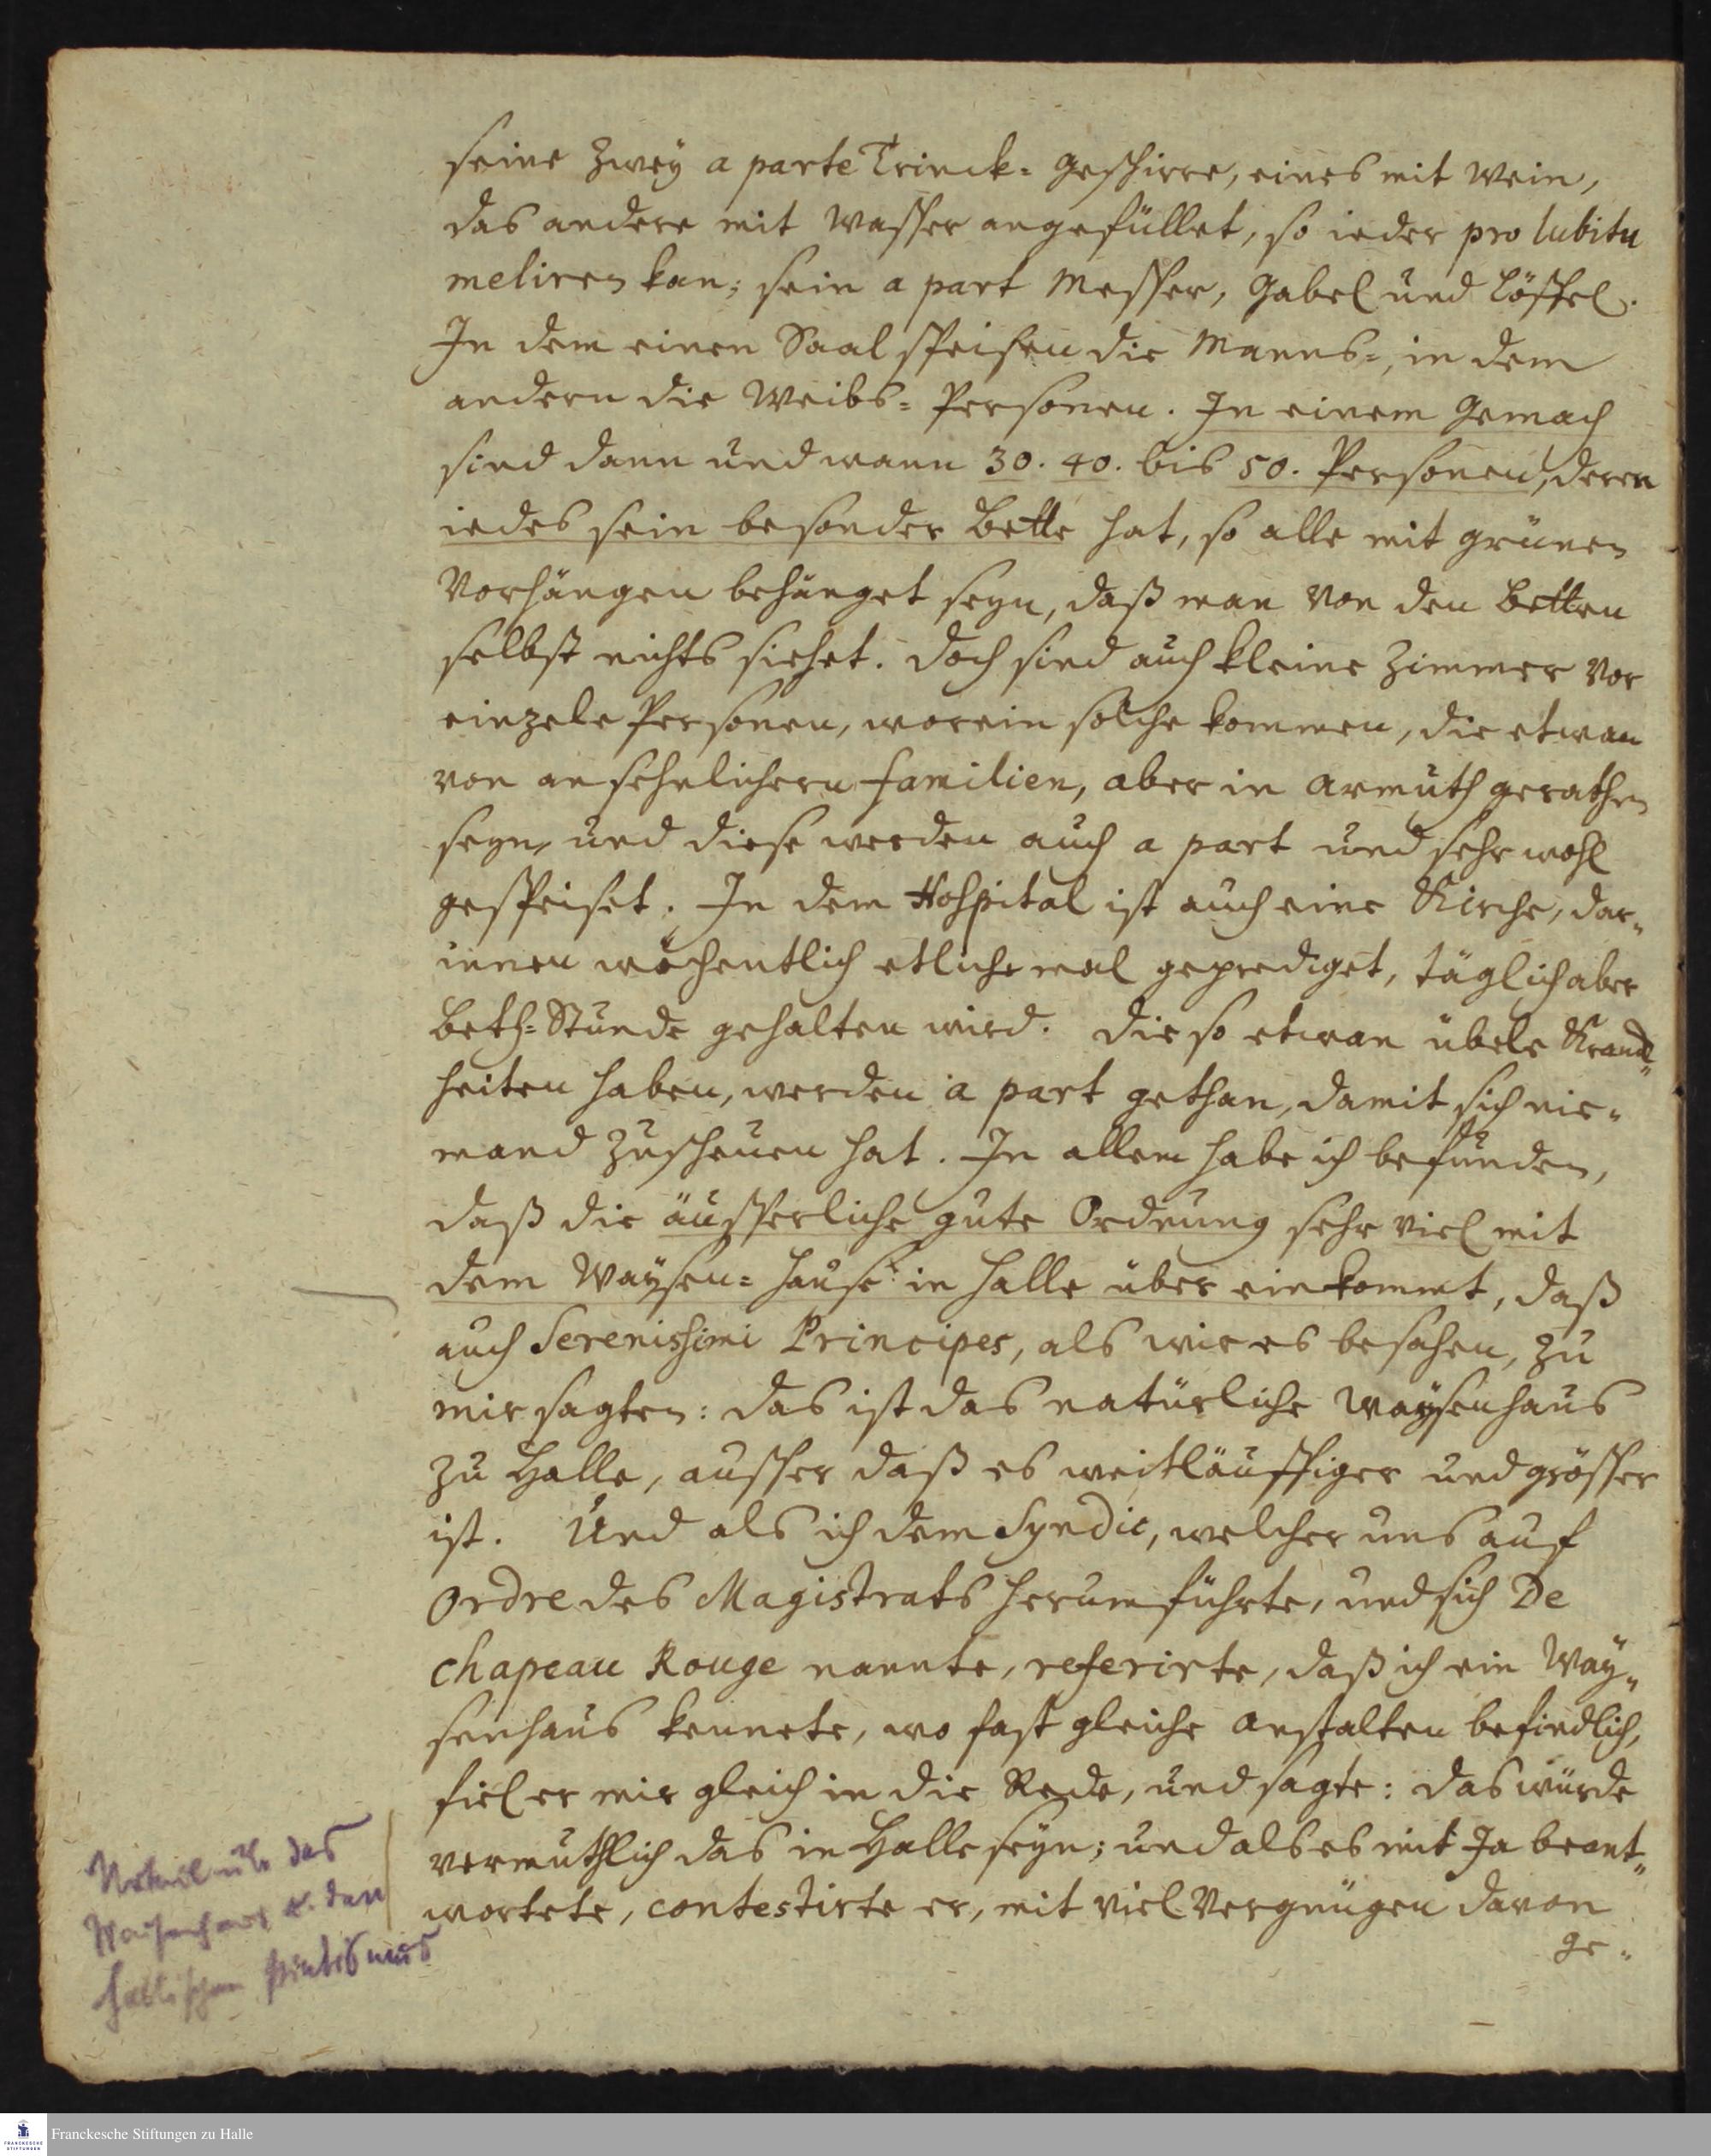 seine zwey a parte Trinck= geschirre, eines mit Wein,
das andere mit Wasser angefüllet, so ieder pro lubitu
meliren kan; sein a part Messer, Gabel und Löffel.
In dem einen Saal speisen die Manns=, in dem
andern die Weibs= Personen. In einem Gemach
sind dann und wann 30. 40. bis 50. Personen, deren
iedes sein besonder Bette hat, so alle mit grünen
Vorhängen behänget seyn, daß man von den Betten
selbst nichts siehet. Doch sind auch kleine Zimmer vor
einzele Personen, worein solche kommen, die etwan
von ansehnlichern familien, aber in Armuth gerathen
seyn, und diese werden auch a part und sehr wohl
gespeiset. In dem Hospital ist auch eine Kirche, dar=
innen wöchentlich etliche mal geprediget, täglich aber
Beth=Stunde gehalten wird. Die so etwan übele Kranck=
heiten haben, werden a part gethan, damit sich nie=
mand zuscheuen hat. In allem habe ich befunden,
daß die äusserliche gute Ordnung sehr viel mit
dem Waysen= Hause in Halle über einkommt, daß
auch Serenissimi Principes, als wir es besahen, zu
mir sagten: das ist das natürliche Waysenhaus
zu Halle, ausser daß es weitläuffiger und grösser
ist. Und als ich dem Syndic, welcher uns auf
Ordre des Magistrats herumführte, und sich De
chapeau Rouge nannte, referirte, daß ich ein Way=
senhaus kennete, wo fast gleiche Anstalten befindlich,
fiel er mir gleich in die Rede, und sagte: das würde
vermuthlich das in Halle seyn; und als es mit Ja beant=
wortete, contestirte er, mit viel Vergnügen davon
ge=
Urteil über das
Waisenhaus u. den
hallischen Pietismus
Franckesche Stiftungen zu Halle
FRANCKESCHE
STIFTUNGEN